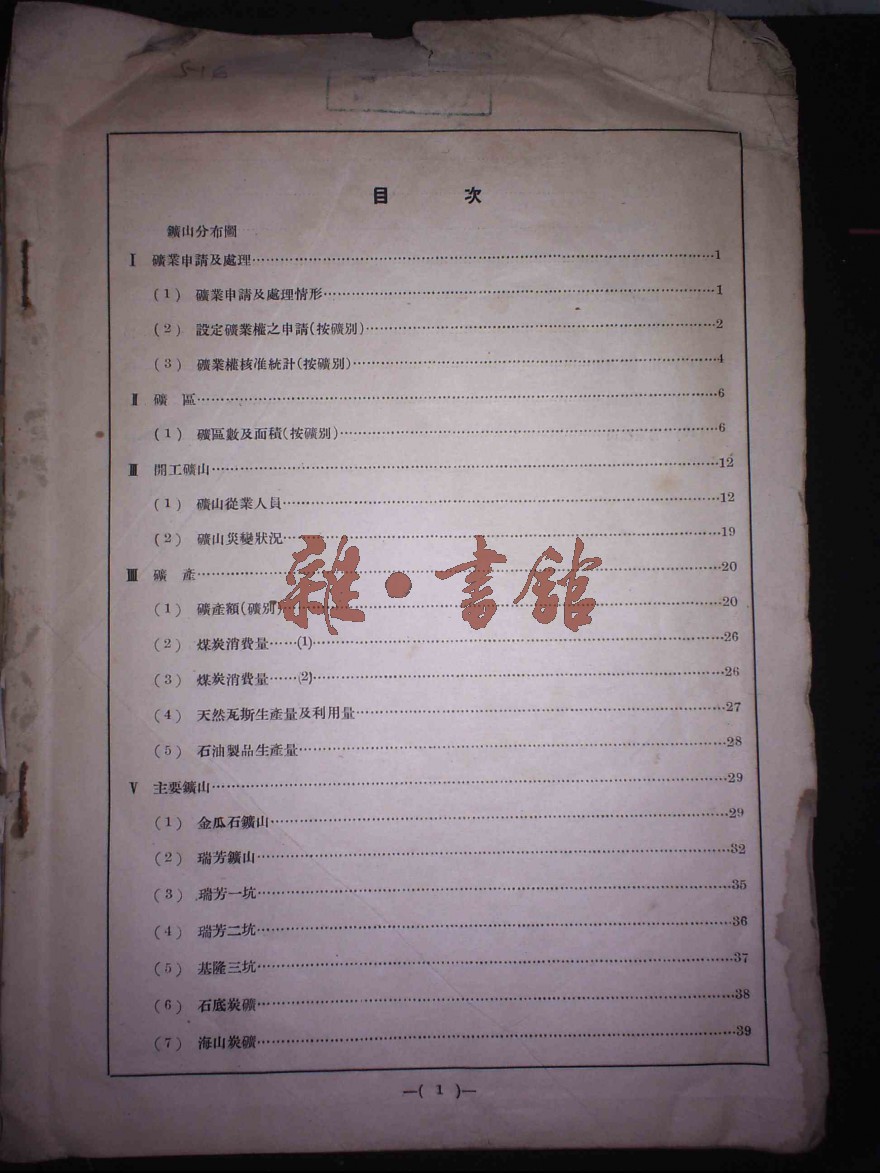 目 次
鑛山分布圖
Ⅰ 礦業申請及處理……1
(1) 礦業申請及處理情形……1
(2) 設定礦業權之申請(按礦別)……2
(3) 礦業權核准統計(按礦別)……4
Ⅱ 礦 區……6
(1) 礦區數及面積(按礦別)……6
Ⅲ 開工礦山……12
(1) 礦山從業人員……12
(2) 礦山災變狀況……19
雜·書館
Ⅲ 礦 產……20
(1) 礦產額(礦別)……20
(2) 煤炭消費量……(1)……26
(3) 煤炭消費量……(2)……26
(4) 天然瓦斯生產量及利用量……27
(5) 石油製品生產量……28
Ⅴ 主要鑛山……29
(1) 金瓜石鑛山……29
(2) 瑞芳鑛山……32
(3) 瑞芳一坑……35
(4) 瑞芳二坑……36
(5) 基隆三坑……37
(6) 石底炭礦……38
(7) 海山炭礦……39
—( 1 )—